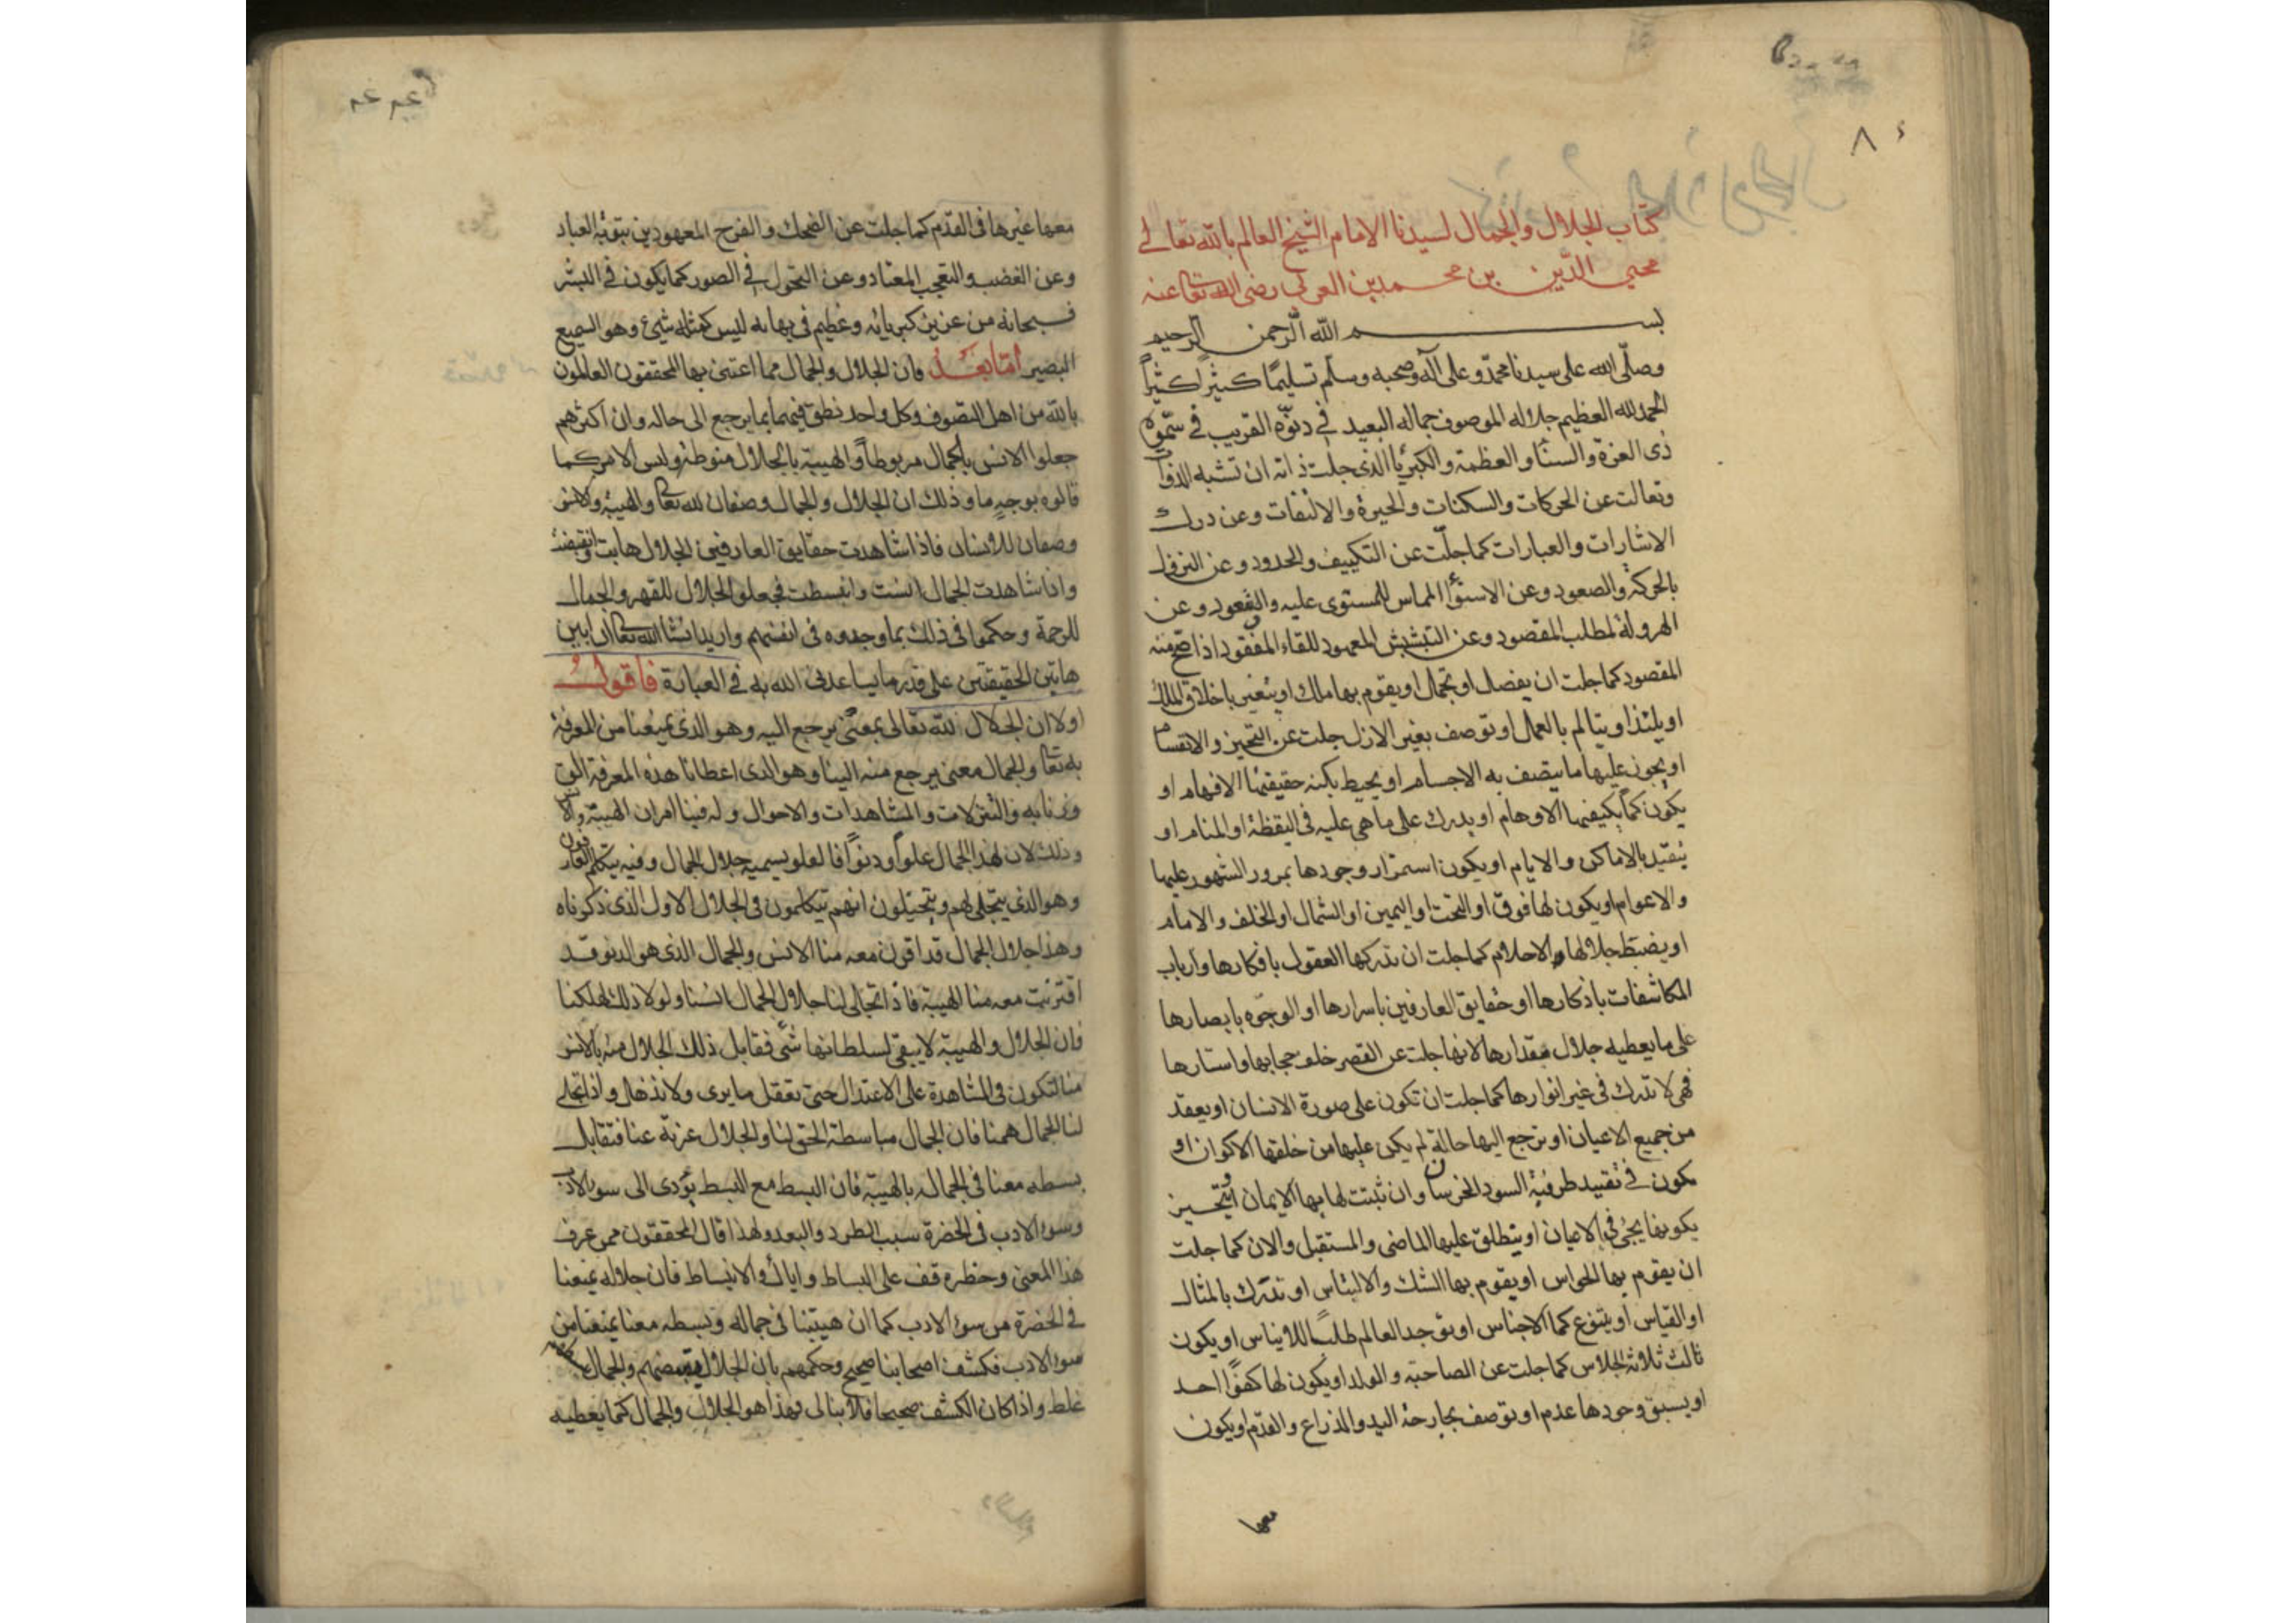 ٨
كتاب الجلال والجمال لسيدنا الامام الشيخ العالم بالله تعالى
محيي الدين بن محمد بن العربي رضى الله تعا عنه
بسم الله الرحمن الرحيم
وصلى الله على سيدنا محمد وعلى آله وصحبه وسلم تسليما كثيرا كثيرا
الحمد لله العظيم جلاله الموصوف جماله البعيد في دنوه القريب في سموه
ذى العزة والسنا والعظمة والكبريا الذى جلت ذاته ان تشبه الذوات
وتعالت عن الحركات والسكنات والحيرة والالتفات وعن درك
الاشارات والعبارات كما جلت عن التكييف والحدود وعن النزول
بالحركة والصعود وعن الاستوا المماس للمستوى عليه والقعود وعن
الهرولة لطلب المقصود وعن التبشبش المعهود للقاء المفقود اذا صح منه
المقصود كما جلت ان يفصل او تجمل او يقوم بها ملك او يتغير باخلاق الملك
او يلتذ او يتالم بالعمل او توصف بغير الازل جلت عن التحيز والانقسام
او يجوز عليها ما يتصف به الاجسام او يحيط بكنه حقيقتها الافهام او
يكون كما يكيفها الاوهام او يدرك على ما هي عليه فى اليقظة او المنام او
يتقيد بالاماكن والايام او يكون استمرار وجودها بمرور الشهور عليها
والاعوام او يكون لها فوق او التحت او اليمين او الشمال او الخلف والامام
او يضبط جلالها والاحلام كما جلت ان تدركها العقول بافكارها وارباب
المكاشفات باذكارها او حقايق العارفين باسرارها او الوجوه بابصارها
على ما يعطيه جلال مقدارها لانها جلت عن القصر خلف حجابها واستارها
فهى لا تدرك فى غير انوارها كما جلت ان تكون على صورة الانسان او يعقد
من جميع الاعيان او ترجع اليها حالة لم يكن عليها من خلقها الاكوان او
مكون في تقييد ظرفية السودا الخرسا وان ثبتت لها بها الايمان او يتحيز
يكونها يجئ في الاعيان او يتطلق عليها الماضى والمستقبل والان كما جلت
ان يقوم بها الحواس او يقوم بها الشك والالتباس او تدرك بالمثال
او القياس او يتنوع كما الاجناس او توجد العالم طلبا للايناس او يكون
ثالث ثلاثة الجلاس كما جلت عن الصاحبة والولد او يكون لها كفوا احد
او يسبق وجودها عدم او توصف بجارحة اليد والذراع والقدم او يكون
معها
معها غيرها فى القدم كما جلت عن الضحك والفرح المعهودين بتوبة العباد
وعن الغضب والتعجب المعتاد وعن التحول في الصور كما يكون في البشر
فسبحانه من عزيز كبريائه وعظيم في بهائه ليس كمثله شىء وهو السميع
البصير امّا بعد فان الجلال والجمال مما اعتنى بها المحققون العالمون
بالله من اهل التصوف وكل واحد نطق فيهما بما يرجع الى حاله وان اكثرهم
جعلوا الانس بالجمال مربوطا والهيبة بالجلال منوطة وليس الامر كما
قالوه بوجه ما وذلك ان الجلال والجمال وصفان لله تعا والهيبة والانس
وصفان للانسان فاذا شاهدت حقايق العارفين الجلال هابت وانقبضت
واذا شاهدت الجمال انست وانبسطت فجعلوا الجلال للقهر والجمال
للرحمة وحكموا فى ذلك بما وجدوه فى انفسهم واريد انشا الله تعا ان ابين
هاتين الحقيقتين على قدر ما يساعدنى الله به فى العبارة فاقول
اولا ان الجلال لله تعالى بمعنى يرجع اليه وهو الذى يمنعنا من المعرفة
به تعا والجمال معنى يرجع منه الينا وهو الذى اعطانا هذه المعرفة التى
وزنا به والتنزلات والمشاهدات والاحوال وله فينا امران الهيبة والانس
وذلك لان لهذا الجمال علوا ودنوا فالعلو يسميه جلال الجمال وفيه يتكلم العارفون
وهو الذى يتجلى لهم ويتخيلون انهم يتكلمون فى الجلال الاول الذى ذكرناه
وهذا جلال الجمال قد اقترن معه منا الانس والجمال الذى هو الدنو قد
اقترنت معه منا الهيبة فاذا تجلى لنا جلال الجمال انسنا ولولا ذلك لهلكنا
فان الجلال والهيبة لا يبقى لسلطانها شئ فقابل ذلك الجلال منه بالانس
منا لتكون فى المشاهدة على الاعتدال حتى تعقل ما يرى ولا نذهل واذا تجلى
لنا الجمال همنا فان الجمال مباسطة الحق لنا والجلال عزته عنا فتقابل
بسطه معنا فى الجماله بالهيبة فان البسط مع البسط يؤدى الى سو الادب
وسوء الادب فى الحضرة سبب الطرد والبعد ولهذا قال المحققون ممن عرف
هذا المعنى وحظره قف على البساط واياك والانبساط فان جلاله يمنعنا
في الحضرة من سوء الادب كما ان هيبتنا فى جماله وبسطه معنا يمنعنا من
سوء الادب فكشف اصحابنا صحيح وحكمهم بان الجلال يقبضهم والجمال يبسطهم
غلط واذا كان الكشف صحيحا فلا نبالى فهذا هو الجلال والجمال كما يعطيه